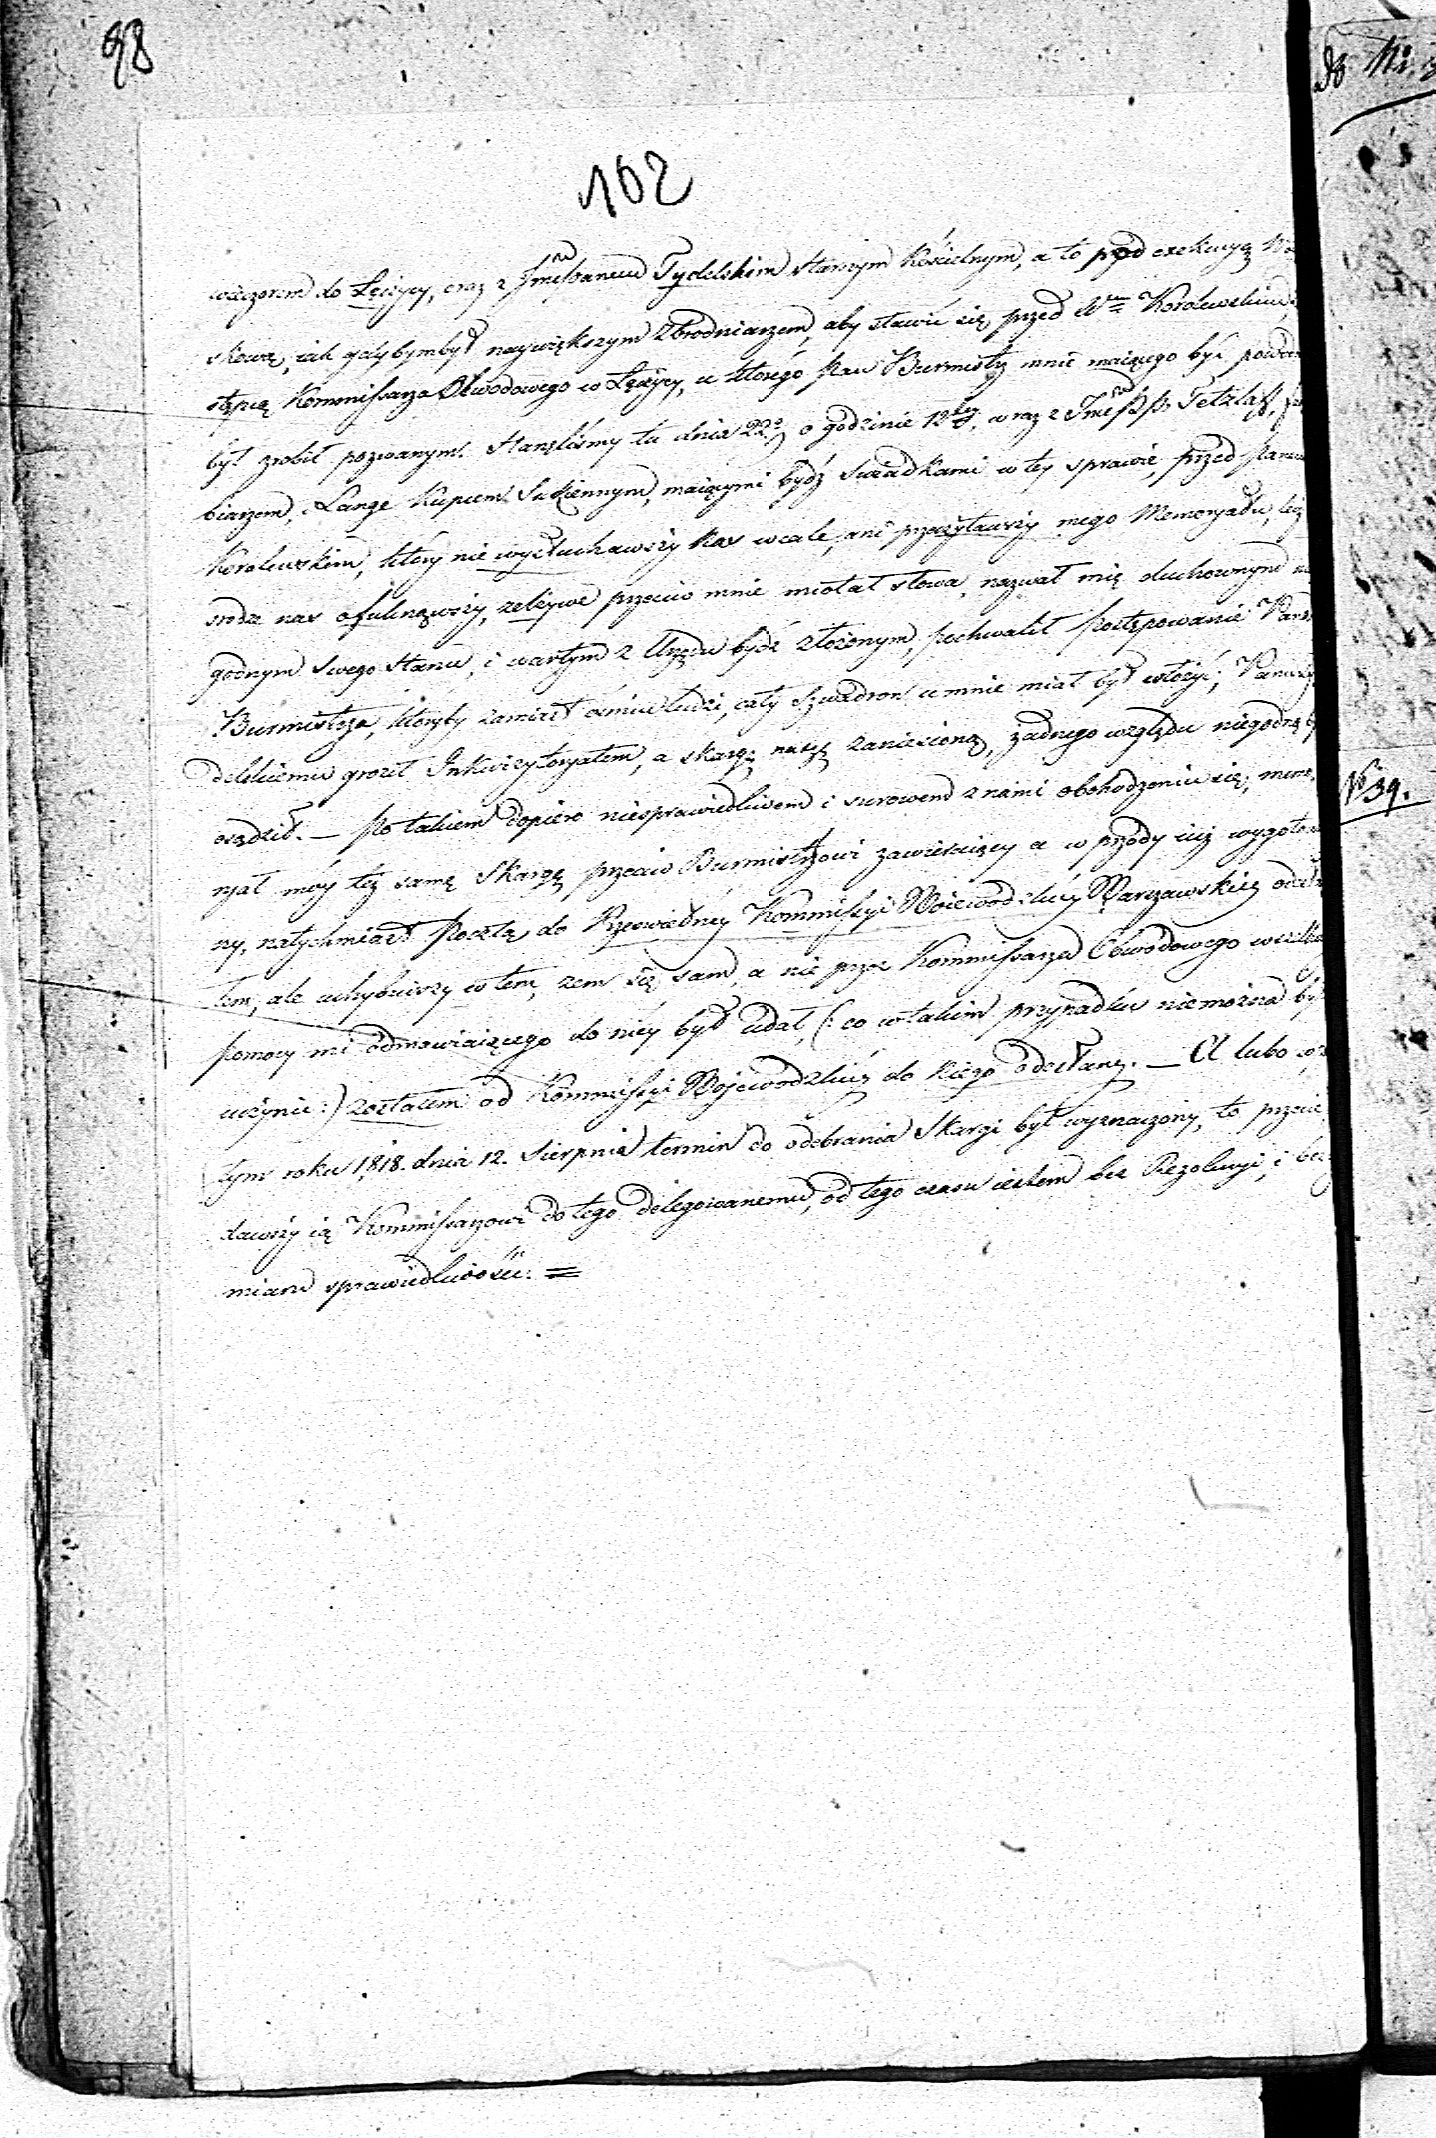 98
102
wieczorem do Łęczycy, oraz z Jmć Panem Tydelskim starszym Kościelnym, a to pod exekucyą
skową, iak gdybym był naywiększym Zbrodniarzem, aby stawić się przed Wm Korolewskim,
stępcą Kommissarza Obwodowego w Łęczycy, u którego Pan Burmistrz mnie maiącego być
był zrobił pozwanym. Stanęliśmy tu dnia 22o o godzinie 12tey, wraz z Jmć PP. Tetzlaff,
biarzem, Lange Kupcem Sukiennym, maiącymi bydź Swiadkami w tey sprawie, przed Panem
Korolewskim, który nie wysłuchawszy nas wcale, ani przeczytawszy mego Memoryału,
srodze nas ofuknąwszy, zelżywe przeciw mnie miotał słowa, nazwał mię duchownym
godnym swego Stanu, i wartym z Urzędu bydź złożonym, pochwalił Postępowanie Pana
Burmistrza, któryby zamiast ośmiu ludzi, cały Szwadron u mnie miał był włożyć; Panu
delskiemu groził Inkwizytoryatem, a skargę naszę zaniesioną, żadnego względu niegodną
osądził. — Po takiem dopiero niesprawiedliwem i surowem z nami obchodzeniu się,
ryał móy też samę Skargę przeciw Burmistrzowi zawieraiący a w przody iuż
ny, natychmiast Pocztą do Prześwietney Kommissyi Woiewodzkiey Warszawskiey
łem, ale uchybiwszy w tem, żem się sam, a nie przez Kommissarza Obwodowego
pomocy mi odmawiaiącego do niéy był udał, (: co w takim przypadku niemożna
uczynić :) zostałem od Kommissyi Wojewodzkiéy do niego odesłany. — A lubo
tym roku 1818. dnia 12. Sierpnia termin do odebrania Skargi był wyznaczony, to przecie
dawszy ią Kommissarzowi do tego delegowanemu, od tego czasu iestem bez Rezolucyi, i bez
miaru sprawiedliwości. =
No 39.